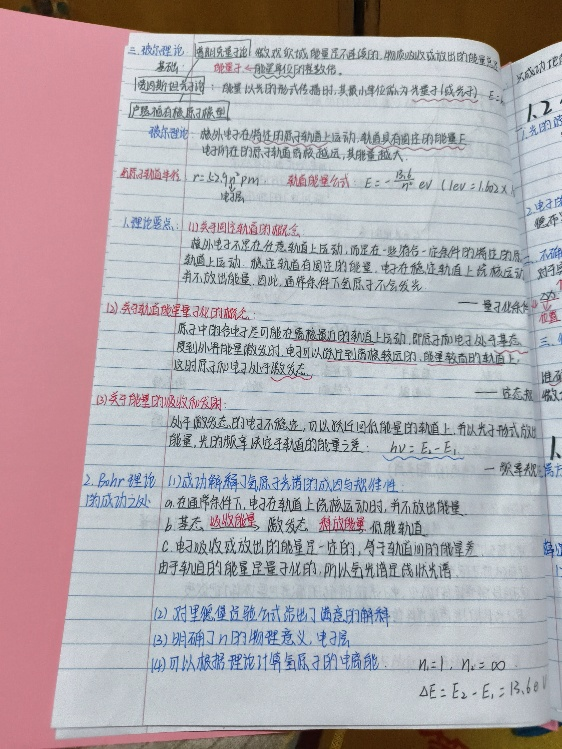 三. 玻尔理论 普朗克量子论 微观领域能量是不连续的, 物质吸收或放出的能量总是
基础: 能量子←能量单位的整数倍.
爱因斯坦光子论: 能量以光的形式传播时, 其最小单位称为光量子(或光子) E=
卢瑟福有核原子模型
玻尔理论: 核外电子在特定的原子轨道上运动, 轨道具有固定的能量E
电子所在的原子轨道离核越远, 其能量越大.
氢原子轨道半径 r=52.9n² pm 轨道能量公式 E=-13.6/n² eV (1eV=1.602×1
电子层
1.理论要点: (1)关于固定轨道的概念
核外电子不是在任意轨道上运动, 而是在一些符合一定条件的特定的原
轨道上运动. 稳定轨道有固定的能量. 电子在稳定轨道上绕核运动
并不放出能量. 因此, 通常条件下氢原子不会发光
— 量子化条件
(2)关于轨道能量量子化的概念:
原子中的各电子尽可能在离核最近的轨道上运动, 即原子和电子处于基态.
受到外界能量激发时, 电子可以跃迁到离核较远的, 能量较高的轨道上.
这时原子和电子处于激发态.
— 定态
(3)关于能量的吸收和发射:
处于激发态的电子不稳定, 可以跃迁回低能量的轨道上, 并以光子形式放出
能量, 光的频率决定于轨道的能量之差: hν=E₂-E₁
— 频率规
2. Bohr理论 (1)成功解释了氢原子光谱的成因与规律性.
的成功之处 a. 在通常条件下, 电子在轨道上绕核运动时, 并不放出能量
b. 基态 吸收能量 激发态 释放能量 低能轨道
c. 电子吸收或放出的能量是一定的, 等于轨道间的能量差
由于轨道的能量是量子化的, 所以氢光谱是线状光谱
(2) 对里德堡经验公式给出了满意的解释
(3) 明确了n的物理意义, 电子层
(4) 可以根据理论计算氢原子的电离能. n₁=1, n₂=∞
ΔE=E₂-E₁=13.6e